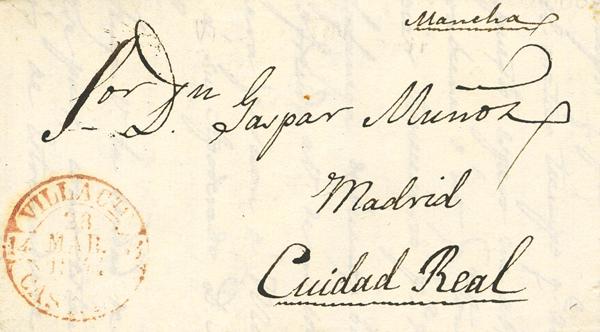 Mancha
Sor Dn. Gaspar Muñoz
Madrid
Cuidad Real
VILLACA
28
MAR.
CAS